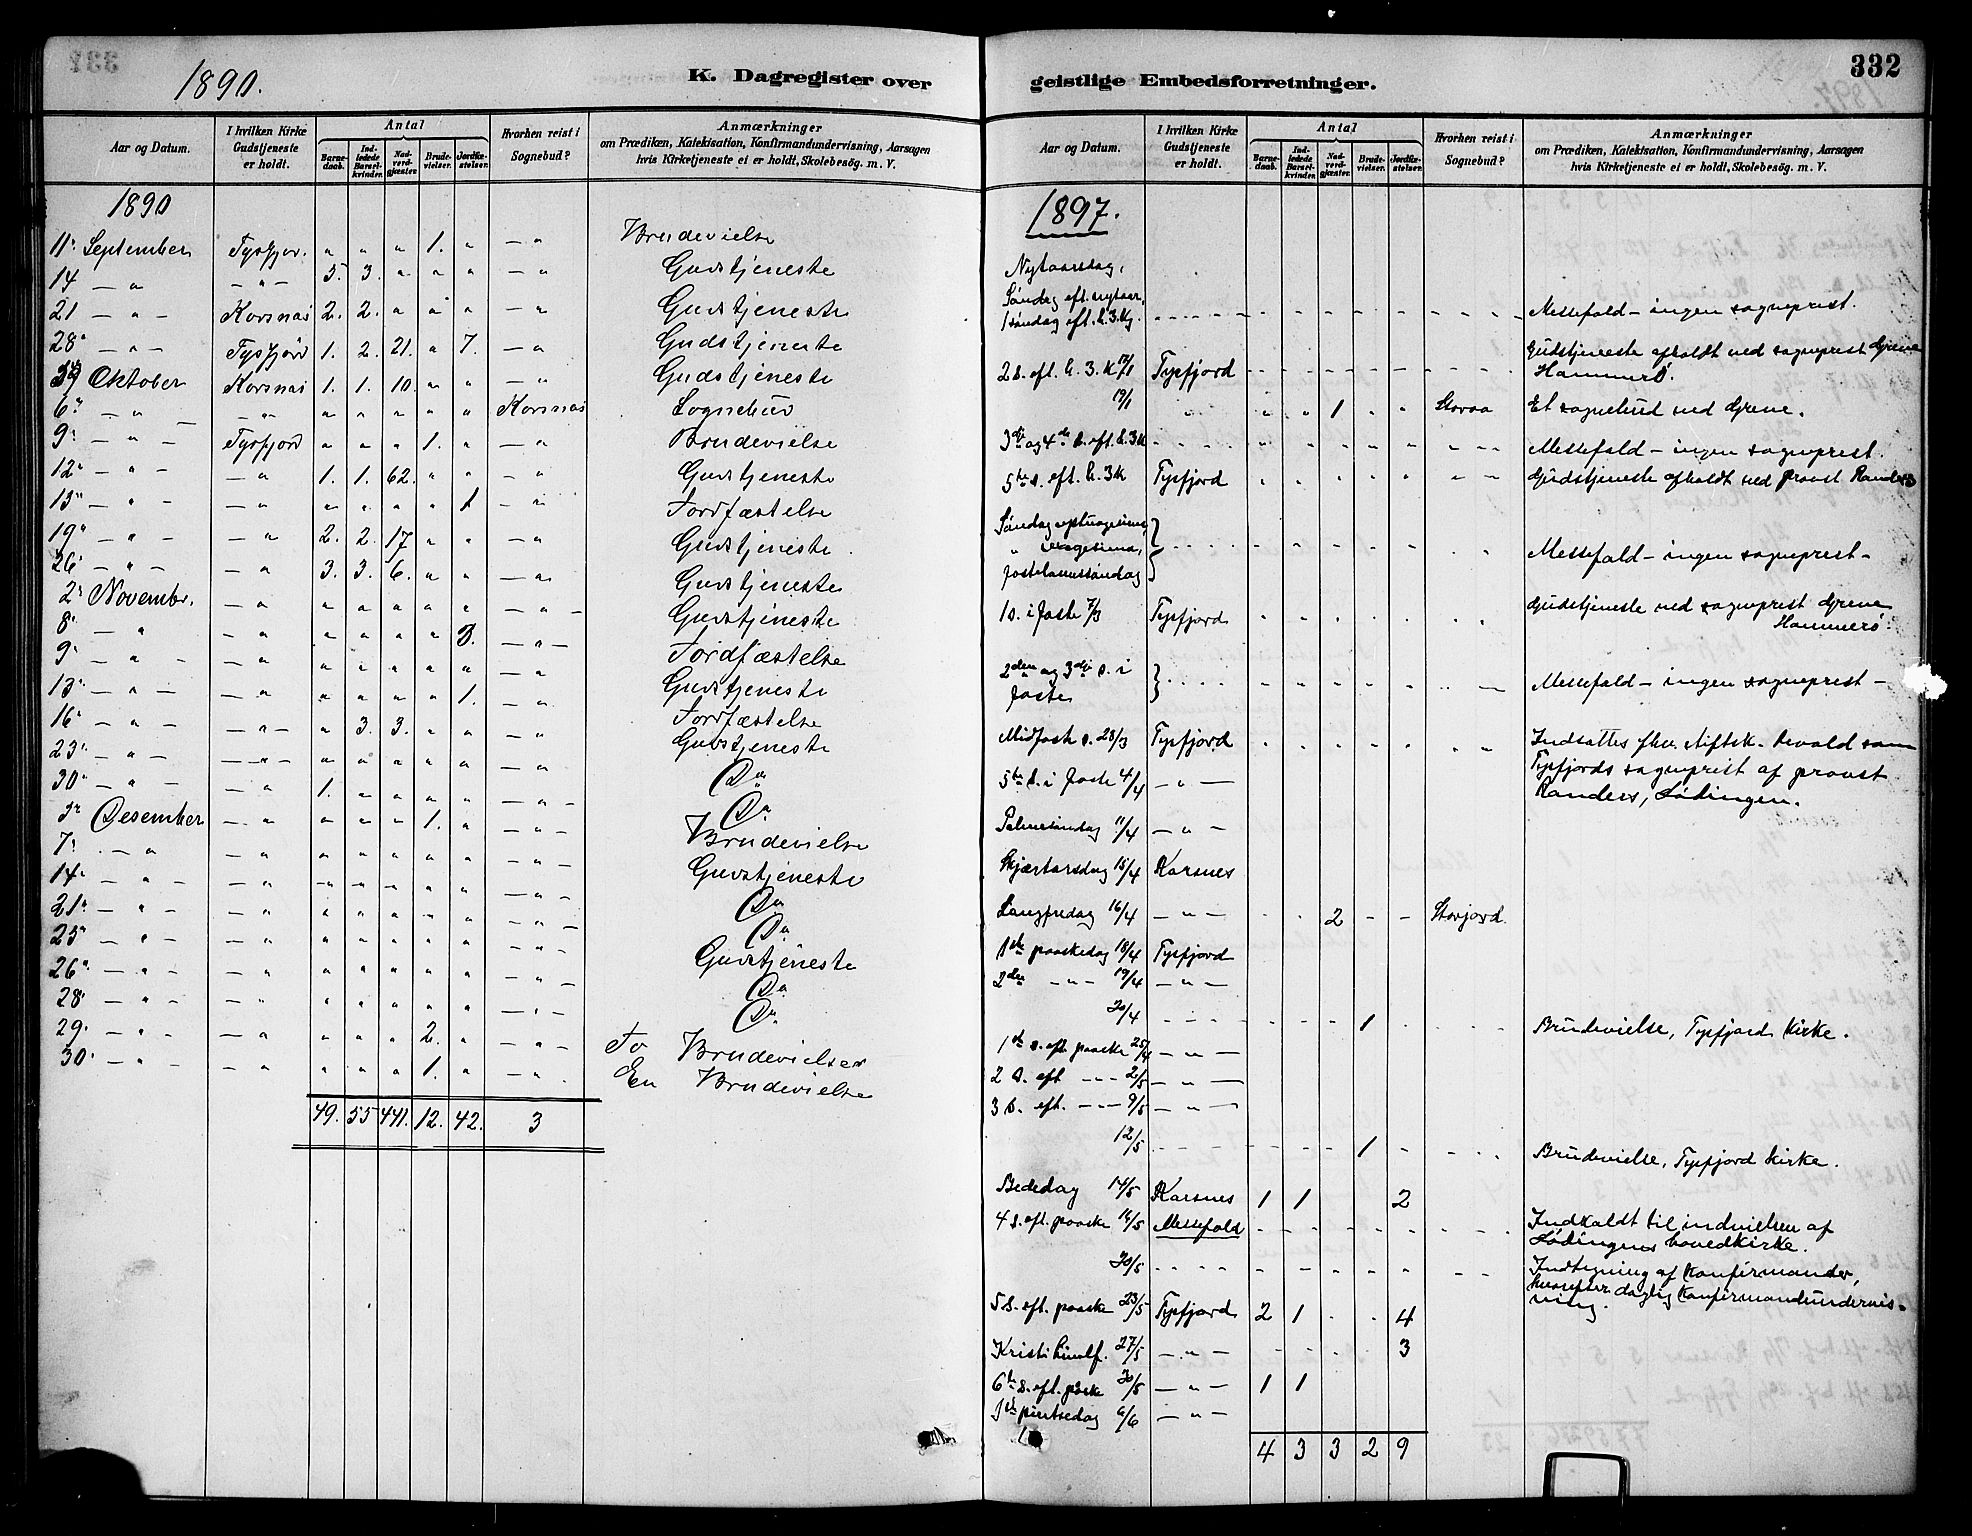 1890.
K. Dagregister over
Aar og Datum.
I hvilken Kirke Gudstjeneste er holdt.
Antal
Barnedaab.
Indledede Barselkvinder.
Nadverdgjester.
Brudevielser.
Jordfæstelser.
Hvorhen reist i Sognebud?
Anmærkninger
om Prædiken, Katekisation, Konfirmandundervisning, Aarsagen
hvis Kirketjeneste ei er holdt, Skolebesøg. m. V.
1890
11" September Tysfjor. " " " 1. " — " Brudevielse
14 — " — " — 5. 3. " " " — " Gudstjeneste
21 — " — Korsnæs 2. 2. " " " — " Gudstjeneste
28" — " — Tysfjord 1. 2. 21. " 7. — " Gudstjeneste
Oktober Korsnæs 1. 1. 10. " " — " Gudstjeneste
6" — " — " — " " " " " Korsnæs Sognebud
9" — " — Tysfjord " " " 1. " — " Brudevielse
12" — " — — " 1. 1. 62. " " — " Gudstjeneste
13" — " — — " " " " " 1 — " Jordfæstelse
19" — " — — " 2. 2. 17 " " — " Gudstjeneste
26" — " — — " 3. 3. 6. " " — " Gudstjeneste
2" Novembr. — " " " " " " — " — Gudstjeneste
8" — " — " " " " " 3. — " — Jordfæstelse
9" — " — — " " " " " " — " Gudstjeneste
13" — " — — " " " " " 1. — " Jordfæstelse
16" — " — — " — " 3. 3. " " — " Gudstjeneste
23" — " — — " — " " " " " — " Do
30" — " — — " 1. " " " " — " — Do
3" Desember — " " " " 1. " — " — Brudevielse
7" — " — " " " " " " — " — Gudstjeneste
14" — " — — " " " " " " — " — Do
21" — " — — " " " " " " — " — Do
25" — " — — " " " " " " — " — Gudstjeneste
26" — " — — " " " " " " — " — Do
28" — " — — " " " " " " — " — Do
29" — " — — " " " " 2. " — " — To Brudevielser
30" — " — — " " " " 1. " — " En Brudevielse
49. 55 441. 12. 42. 3
332
geistlige Embedsforretninger.
Aar og Datum.
I hvilken Kirke Gudstjeneste er holdt.
Antal
Barnedaab.
Indledede Barselkvinder.
Nadverdgjester.
Brudevielser.
Jordfæstelser.
Hvorhen reist i Sognebud?
Anmærkninger
om Prædiken, Katekisation, Konfirmandundervisning, Aarsagen
hvis Kirketjeneste ei er holdt, Skolebesøg. m. V.
1897.
Nytaarsdag,
Søndag eft. nytaar,
1 søndag eft. h. 3. kg. Messefald – ingen sogneprest.
2 s. eft. h. 3. k 17/1 Tysfjord Gudstjeneste afholdt ved sogneprest Grene
Hammerø.
19/1 1 Storaa Et sognebud ved Grene.
3dje og 4de s. eft. h. 3 k Messefald – ingen sogneprest.
5te s. eft. h. 3 k Tysfjord Gudstjeneste afholdt ved provst Randers
Søndag septuagesima,
" sexagesima, Messefald – ingen sogneprest –
fastelavnssøndag
1 s. i faste 7/3 Tysfjord Gudstjeneste ved sogneprest Grene
Hammerø.
2den og 3dje s. i
faste Messefald – ingen sogneprest –
Midfaste s. 28/3 Tysfjord Indsattes fhv. stiftsk. Devold som
5te s. i faste 4/4 — " — Tysfjords sogneprest af provst
Randers, Lødingen.
Palmesøndag 11/4 — " —
Skjærtorsdag 15/4 Korsnes
Langfredag 16/4 — " — 2 Storjord.
1ste paaskedag 18/4 Tysfjord
2den — " — 19/4 — " —
20/4 1 Brudevielse, Tysfjord kirke.
1ste s. eft. paaske 25/4 — " —
2 s. eft — " — 2/5 — " —
3 s. eft. — " — 9/5 — " —
12/5 1 Brudevielse, Tysfjord kirke.
Bededag 14/5 Korsnes 1 1 2
4 s. eft. paaske 16/5 Messefald Indkaldt til indvielsen af
Lødingens hovedkirke.
20/5 Indtegning af konfirmander,
hvorefter daglig konfirmandundervis-
5 s. eft. paaske 23/5 Tysfjord 2 1 4 ning.
Kristi himlf. 27/5 — " — 3
6te s. eft. påske 30/5 — " — 1 1
1ste pintsedag 6/6 — " —
4 3 3 2 9